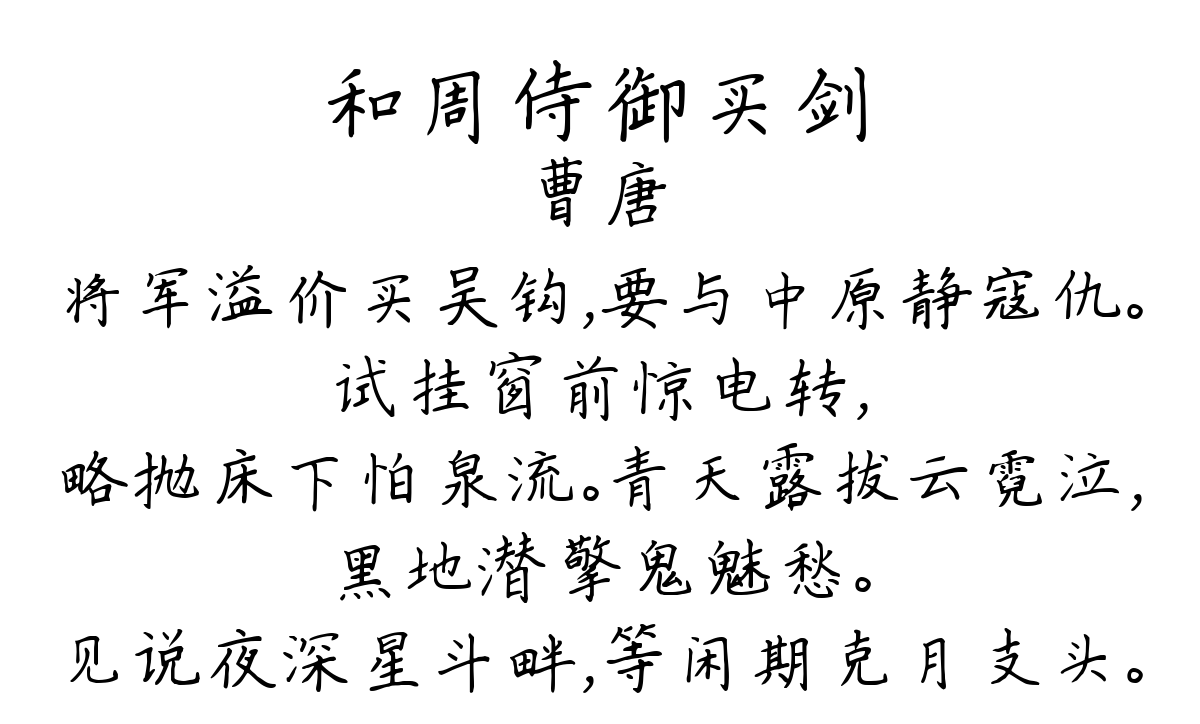 和周侍御买剑
曹唐
将军溢价买吴钩,要与中原静寇仇。
试挂窗前惊电转,
略抛床下怕泉流。青天露拔云霓泣,
黑地潜擎鬼魅愁。
见说夜深星斗畔,等闲期克月支头。